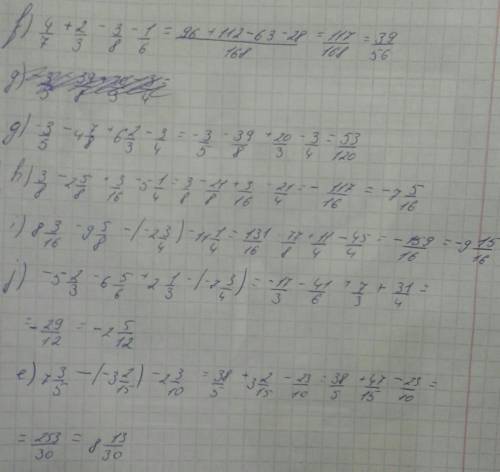 f) 4/7 + 2/3 - 3/8 - 1/6 = (96 + 112 - 63 - 28)/168 = 117/168 = 39/56
g) -3/5 - 4 7/8 + 6 2/3 - 3/4 = -3/5 - 39/8 + 20/3 - 3/4 = 53/120
h) 3/8 - 2 5/8 + 3/16 - 5 1/4 = 3/8 - 21/8 + 3/16 - 21/4 = - 117/16 = -7 5/16
i) 8 3/16 - 9 5/8 - (-2 3/4) - 11 1/4 = 131/16 - 77/8 + 11/4 - 45/4 = - 159/16 = -9 15/16
j) -5 2/3 - 6 5/6 + 2 1/3 - (-7 3/4) = -17/3 - 41/6 + 7/3 + 31/4 =
= -29/12 = -2 5/12
e) 7 3/5 - (-3 2/15) - 2 3/10 = 38/5 + 3 2/15 - 23/10 = 38/5 + 47/15 - 23/10 =
= 253/30 = 8 13/30